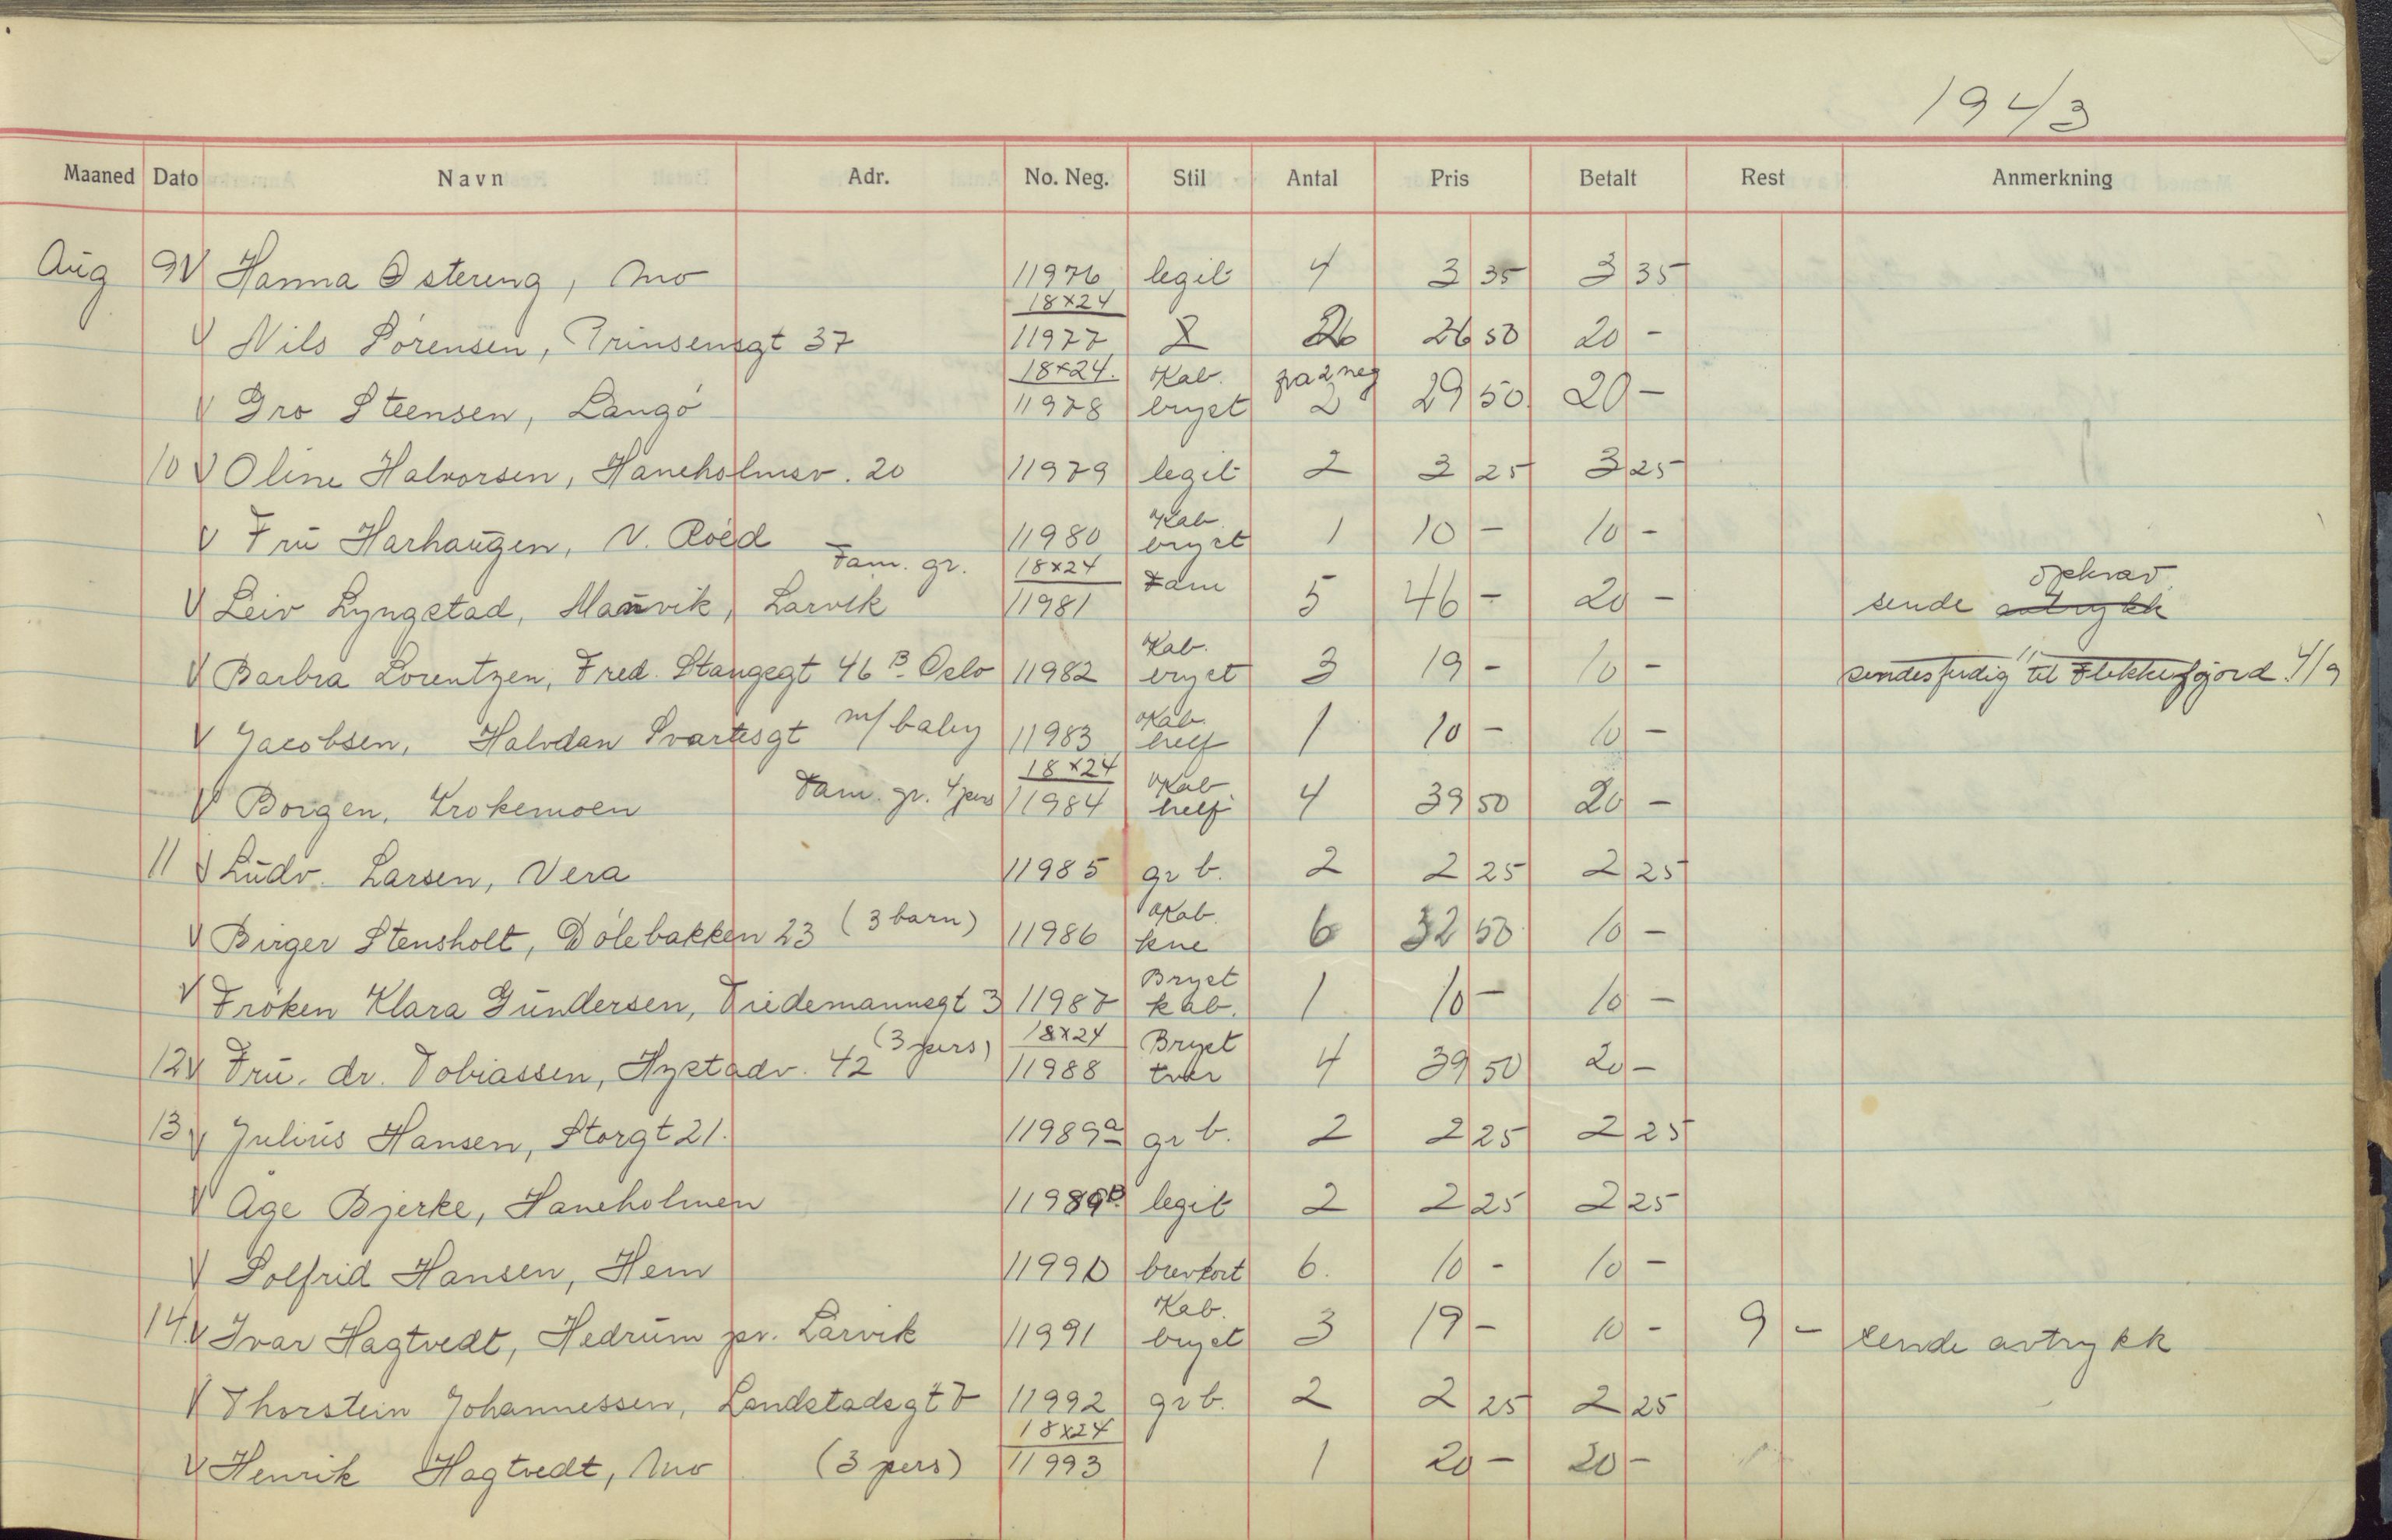 1943
Maaned Dato Navn Adr. No. Neg. Stil Antal Pris Betalt Rest Anmerkning
Aug 9 V Hanna Østereng, Mo 11976 legit 4 3 35 3 35
18x24
V Nils Sörensen, Prinsensgt 37 11977 26 50 20 -
18x24. Kab. fra 2 neg
V Gro Steensen, Langö 11978 bryst 2 29 50 20 -
10 V Oline Halvorsen, Haneholmsv. 20 11979 legit 2 3 25 3 25
Kab.
V Fru Harhaugen, N. Roed 11980 bryst 1 10 - 10 -
Fam. gr. 18x24 opkrav
V Leiv Lyngstad, Manvik, Larvik 11981 Fam 5 46 - 20 - sende avtrykk
Kab.
V Barbra Lorentzen, Fred. Stangsgt 46 B. Oslo 11982 bryst 3 19 - 10 - sendes ferdig til Flekkefjord 4/9
m/ baby Kab.
V Jacobsen, Halvdan Svartesgt 11983 helf 1 10 - 10 -
18x24 Kab
V Borgen, Krokemoen Fam. gr. 4 pers 11984 helf 4 39 50 20 -
11 V Ludv. Larsen, Vera 11985 gr b. 2 2 25 2 25
Kab.
V Birger Stensholt, Dölebakken 23 (3 barn) 11986 kne 6 32 50 10 -
Bryst
V Fröken Klara Gundersen, Tidemannsgt 3 11987 kab. 1 10 - 10 -
(3 pers) 18x24 Bryst
12 V Fru. dr. Tobiassen, Hystadv. 42 11988 tver 4 39 50 20 -
13 V Julius Hansen, Storgt 21. 11989a gr b. 2 2 25 2 25
V Åge Bjerke, Haneholmen 11989B. legit 2 2 25 2 25
V Solfrid Hansen, Hem 11990 brevkort 6. 10 - 10 -
Kab.
14. V Ivar Hagtvedt, Hedrum pr. Larvik 11991 bryst 3 19 - 10 - 9 - sende avtrykk
V Thorstein Johannessen, Landstadsgt 7 11992 gr b. 2 2 25 2 25
18x24
V Henrik Hagtvedt, Mo (3 pers) 11993 1 20 - 20 -